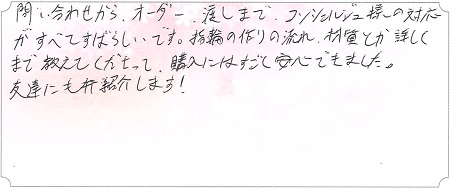 問い合わせから、オーダー、渡しまで、コンシェルジュ様の対応
がすべてすばらしいです。指輪の作りの流れ、材質とか詳しく
まで教えてくださって、購入にはすごく安心できました。
友達にも紹介します！